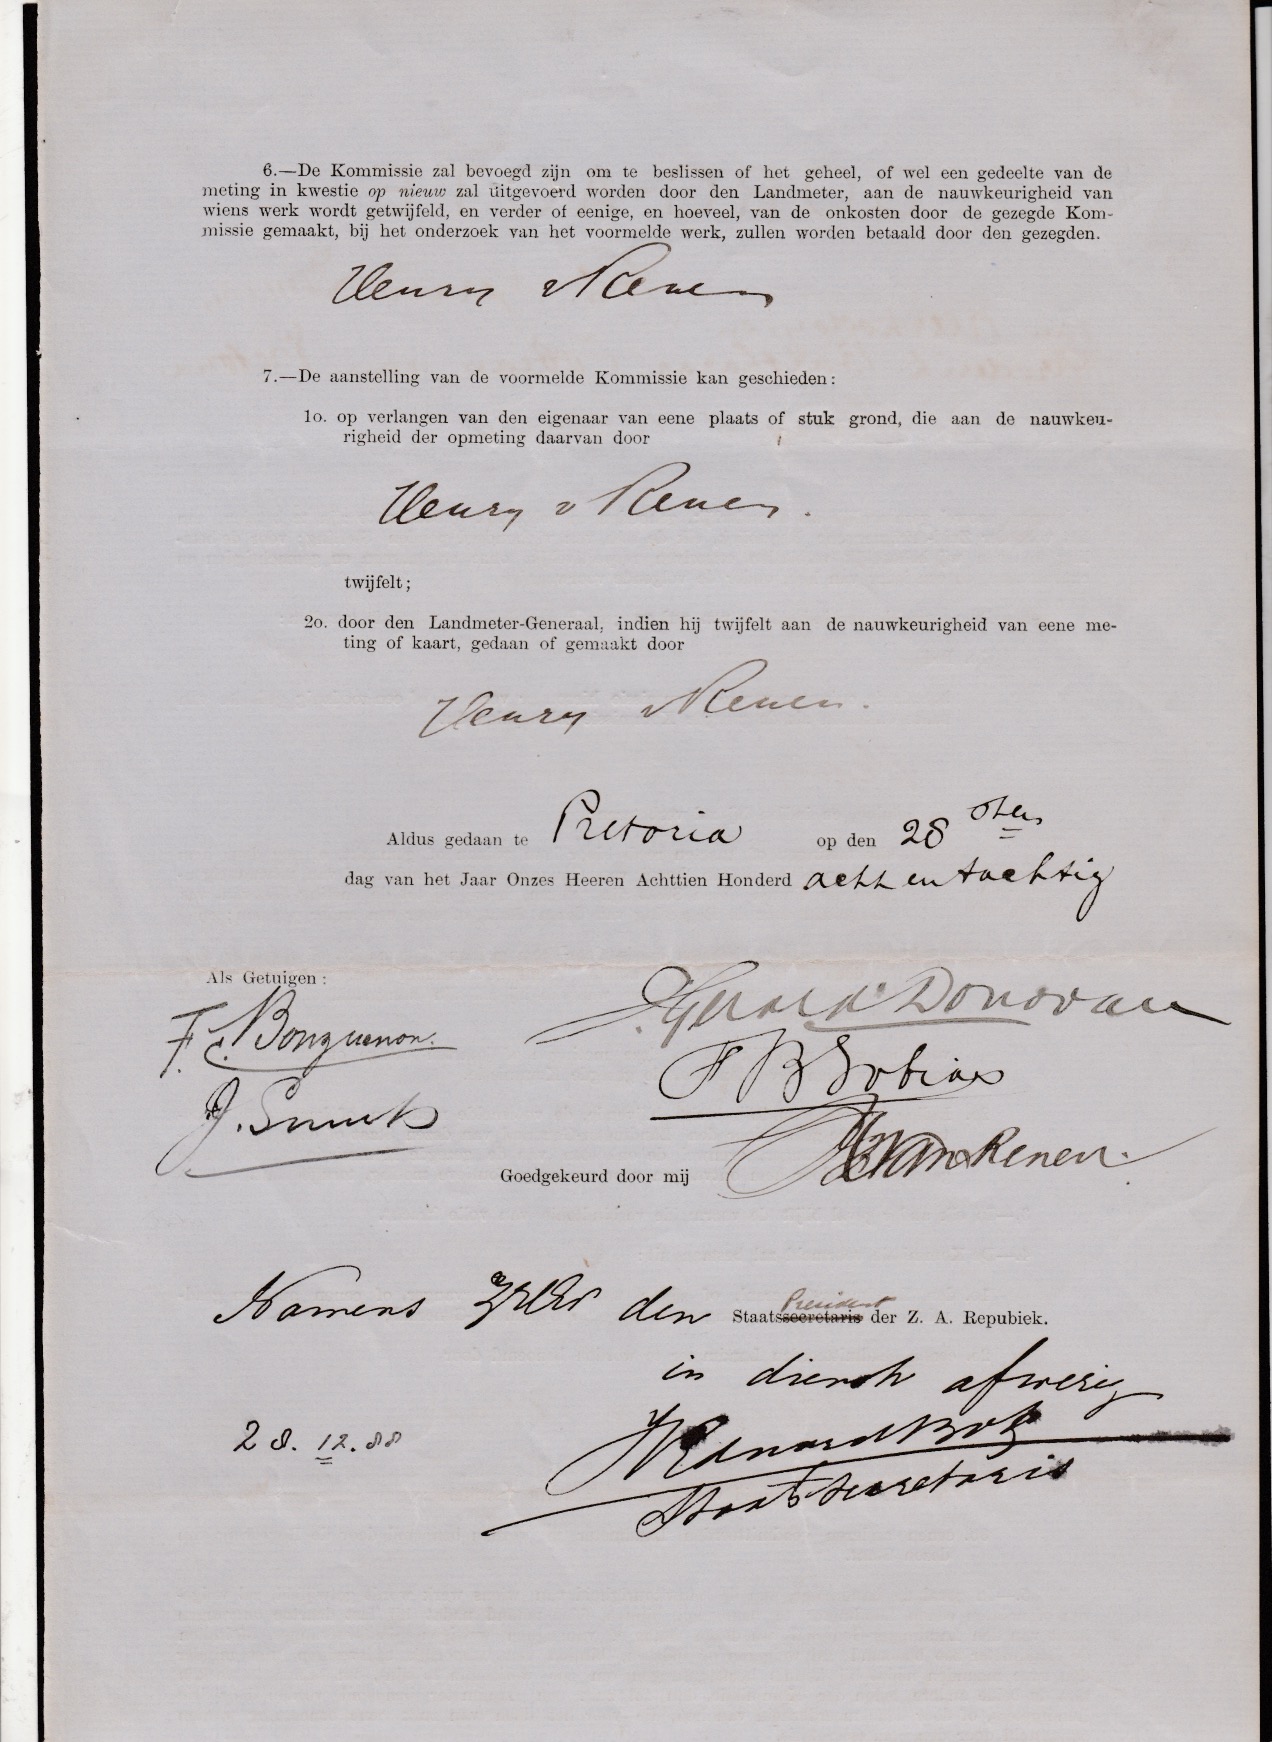 6.—De Kommissie zal bevoegd zijn om te beslissen of het geheel, of wel een gedeelte van de
meting in kwestie op nieuw zal uitgevoerd worden door den Landmeter, aan de nauwkeurigheid van
wiens werk wordt getwijfeld, en verder of eenige, en hoeveel, van de onkosten door de gezegde Kom-
missie gemaakt, bij het onderzoek van het voormelde werk, zullen worden betaald door den gezegden.
Henry v Renen
7.—De aanstelling van de voormelde Kommissie kan geschieden:
1o. op verlangen van den eigenaar van eene plaats of stuk grond, die aan de nauwkeu-
righeid der opmeting daarvan door
Henry v Renen.
twijfelt;
2o. door den Landmeter-Generaal, indien hij twijfelt aan de nauwkeurigheid van eene me-
ting of kaart, gedaan of gemaakt door
Henry v Renen.
Aldus gedaan te Pretoria op den 28sten
dag van het Jaar Onzes Heeren Achttien Honderd acht en tachtig
Als Getuigen:
Gerard Donovan
F. C.
F B Tobias
J. Smuts
van Renen.
Goedgekeurd door mij
Namens den Staatssecretaris President der Z. A. Repubiek.
in dienst afwezig
28.12.88
W Eduard Bok
Staatssecretaris